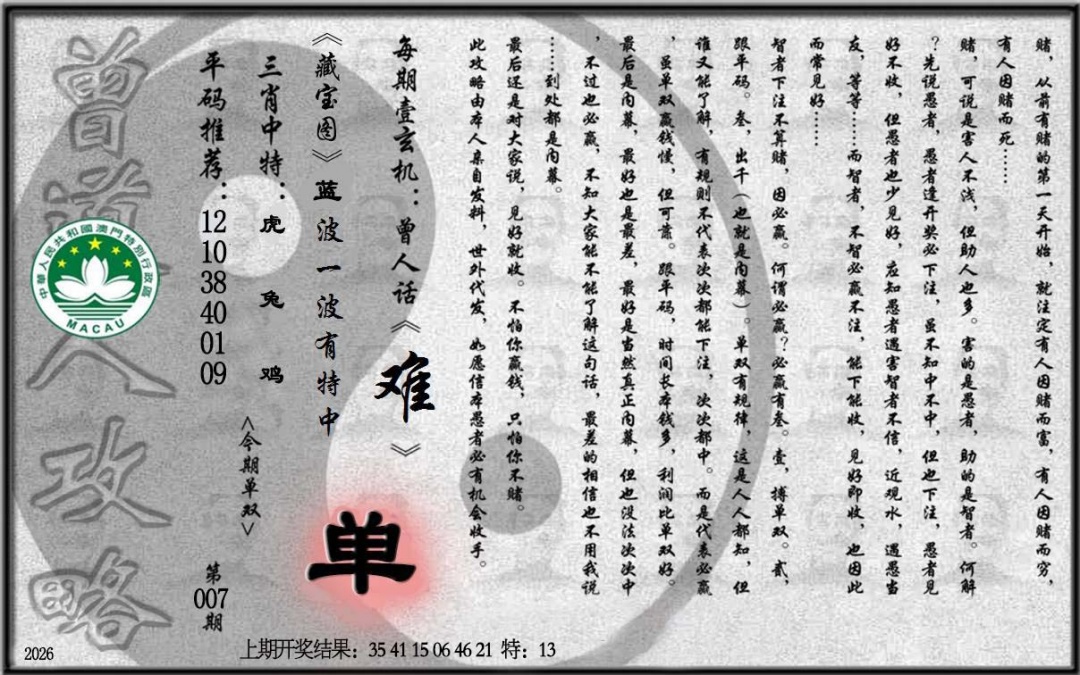 赌，从前有赌的第一天开始，就注定有人因赌而富，有人因赌而穷，
有人因赌而死……
赌，可说是害人不浅，但助人也多。害的是愚者，助的是智者。何解
？先说愚者，愚者逢开奖必下注，虽不知中不中，但也下注，愚者见
好不收，但愚者也少见好，应知愚者遇害智者不信，近观水，遇愚当
友，等等……而智者，不智必赢不注，能下能收，见好即收，也因此
而常见好……
智者下注不算赌，因必赢。何谓必赢？必赢有叁。壹，搏单双。贰，
跟平码。叁，出千（也就是内幕）。单双有规律，这是人人都知，但
谁又能了解，有规则不代表次次都能下注，次次都中。而是代表必赢
，虽单双赢钱慢，但可靠。跟平码，时间长本钱多，利润比单双好。
最后是内幕，最好也是最差，最好是当然真正内幕，但也没法次次中
，不过也必赢，不知大家能不能了解这句话，最差的相信也不用我说
……到处都是内幕。
最后还是对大家说，见好就收。不怕你赢钱，只怕你不赌。
此攻略由本人亲自发料，世外代发，如愿信本愚者必有机会收手。
每期壹玄机：曾人话《难》
《藏宝图》蓝波一波有特中
单
三肖中特：虎 兔 鸡
<今期单双>
平码推荐：12 10 38 40 01 09
第007期
曾道人攻略
中華人民共和國澳門特別行政區
MACAU
2026
上期开奖结果：35 41 15 06 46 21 特：13